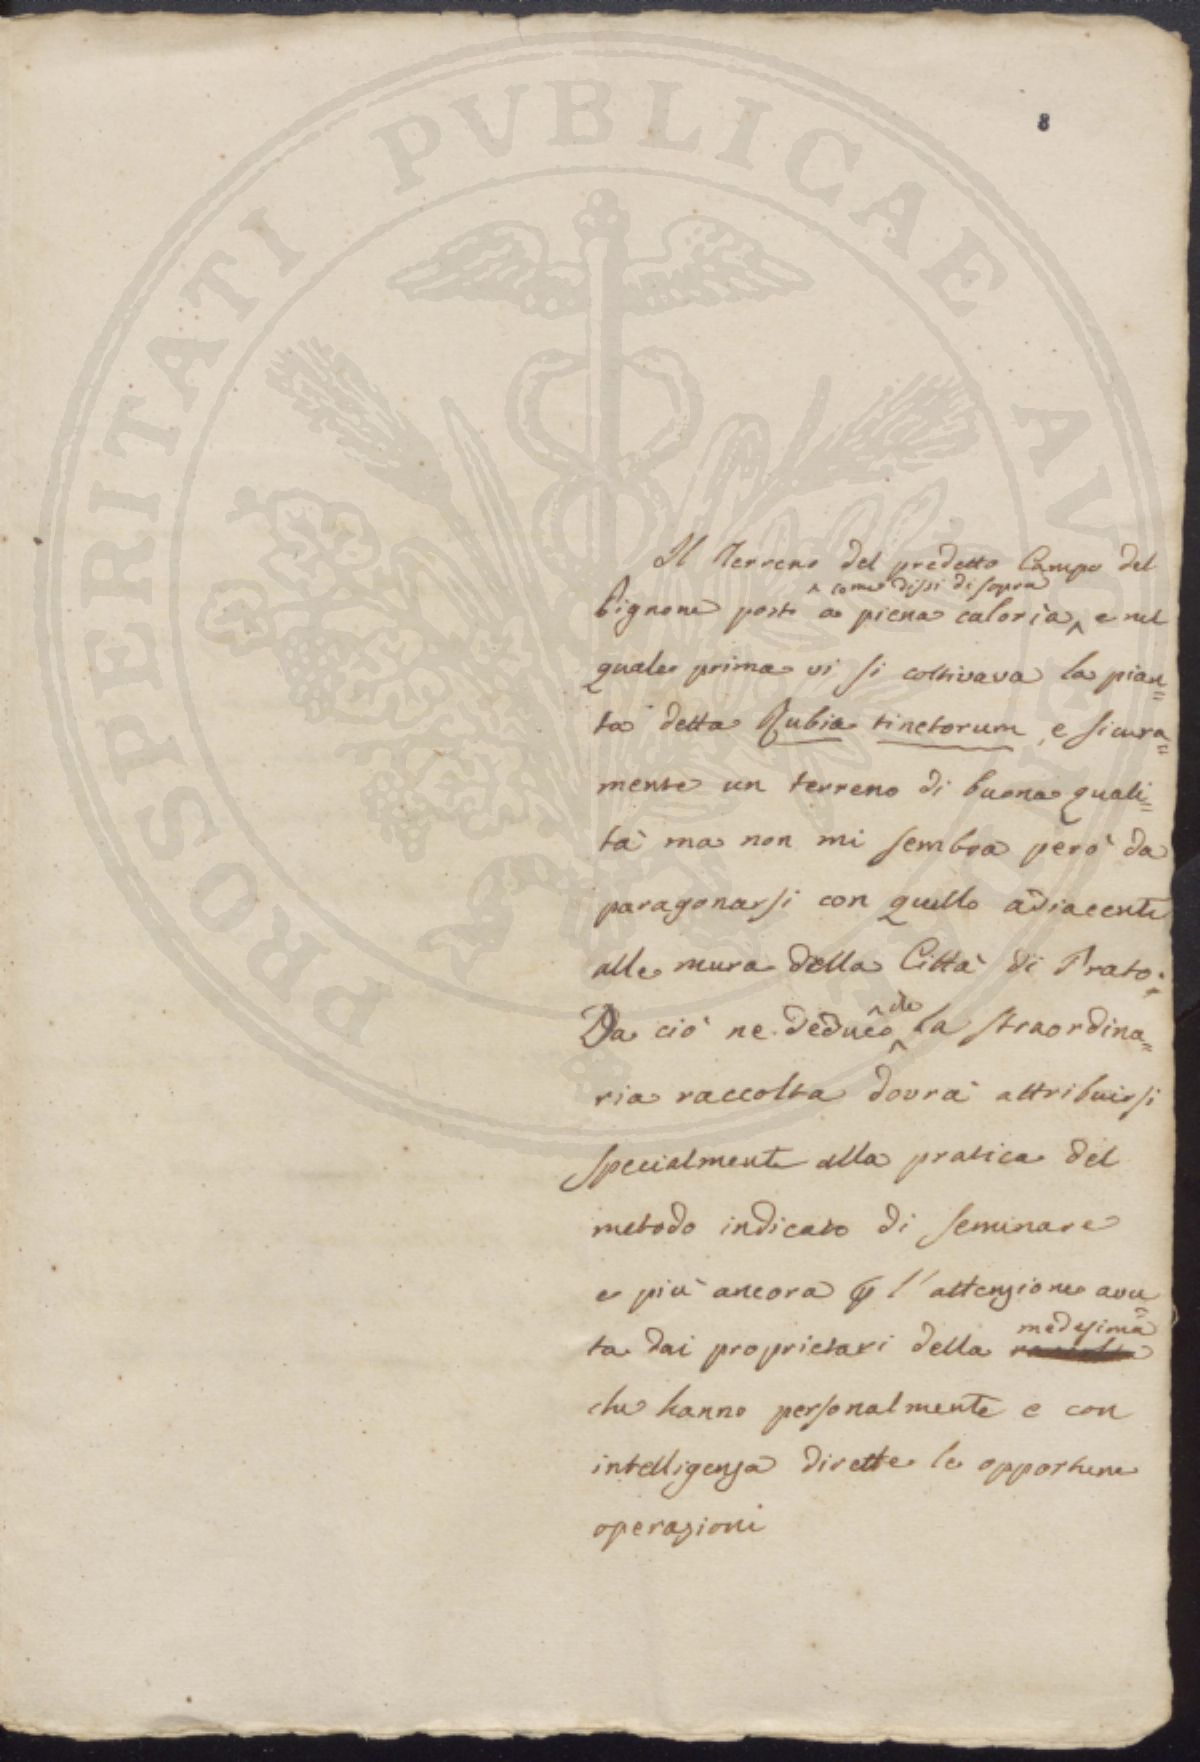 PROSPERITATI PUBLICAE AUGENDAE
8
Il Terreno del predetto Campo del
^ come dissi di sopra
Pignone posto a piena caloria ^ e nel
quale prima vi si coltivava la pian=
ta detta Rubia tinctorum, e sicura=
mente un terreno di buona quali=
tà ma non mi sembra però da
paragonarsi con quello adiacente
alle mura della Città di Prato.
Da ciò ne deduco ^ che la straordina=
ria raccolta dovrà attribuirsi
specialmente alla pratica del
metodo indicato di seminare
e più ancora p l'attenzione avu=
medesima
ta dai proprietari della raccolta
che hanno personalmente e con
intelligenza dirette le opportune
operazioni